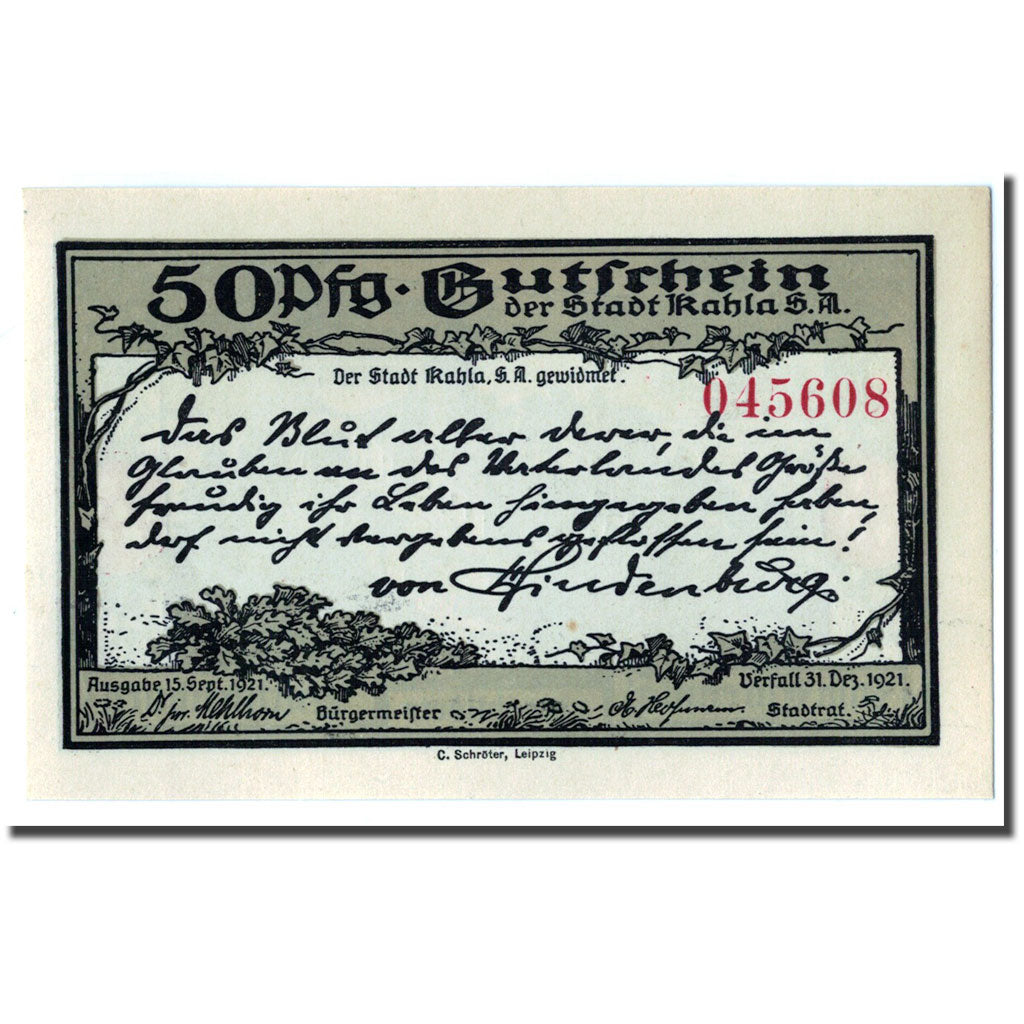 50 Pfg. Gutschein
der Stadt Kahla S.A.
Der Stadt Kahla, S.A. gewidmet.
045608
Das Blut aller derer, die im
Glauben an des Vaterlandes Größe
freudig ihr Leben hingegeben haben,
darf nicht vergebens geflossen sein!
von Hindenburg.
Ausgabe 15. Sept. 1921.
Verfall 31. Dez. 1921.
Dr jur. Mehlhorn Bürgermeister
Stadtrat.
C. Schröter, Leipzig